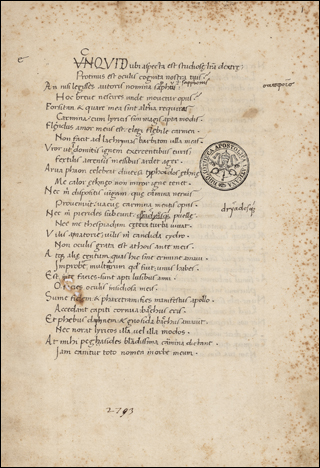 VNQVID ubi aspecta est studiosę lr̄a dextrę:
Protinus est oculis cognita nostra tuis
An nisi legisses autoris nomina sapphus
Hoc breve nescires unde moveretur opus
Forsitan & quare mea sint alterna requiras
Carmina cum lyricis sim magis apta modis
Flendus amor meus est: elegi flebile carmen
Non facit ad lachrymas barbiton ulla meas
Vror ut indomitis ignem exercentibus euris
Fertilis accensis messibus ardet ager
Arva phaon celebrat diversa typhoidos ethnę
Me calor ethnęo non minor igne tenet
Nec mi dispositis que carmina nervis
Proveniunt: vacuę carmina mentis opus
Nec me pierides subeunt puellę
Nec me thespiadum cętera turba iuvat
Vilis vilis mi candida cydro
Non oculis grata est athois ante meis
Atq; alię centum quas hic sine crimine amavi
Improbe, multarum quod fuit, unus habes
Est in te facies: sunt apti lusibus anni
O facies oculis insidiosa meis
Sume fidem & pharetram: fies manifestus apollo
Accedant capiti cornua bacchus eris
Et phębus daphnem & gnosida bacchus amavit
Nec norat lyricos illa vel illa modos
At mihi pegasides blādissima carmina dictant
Iam canitur toto nomen in orbe meum
dryadesq;
2793